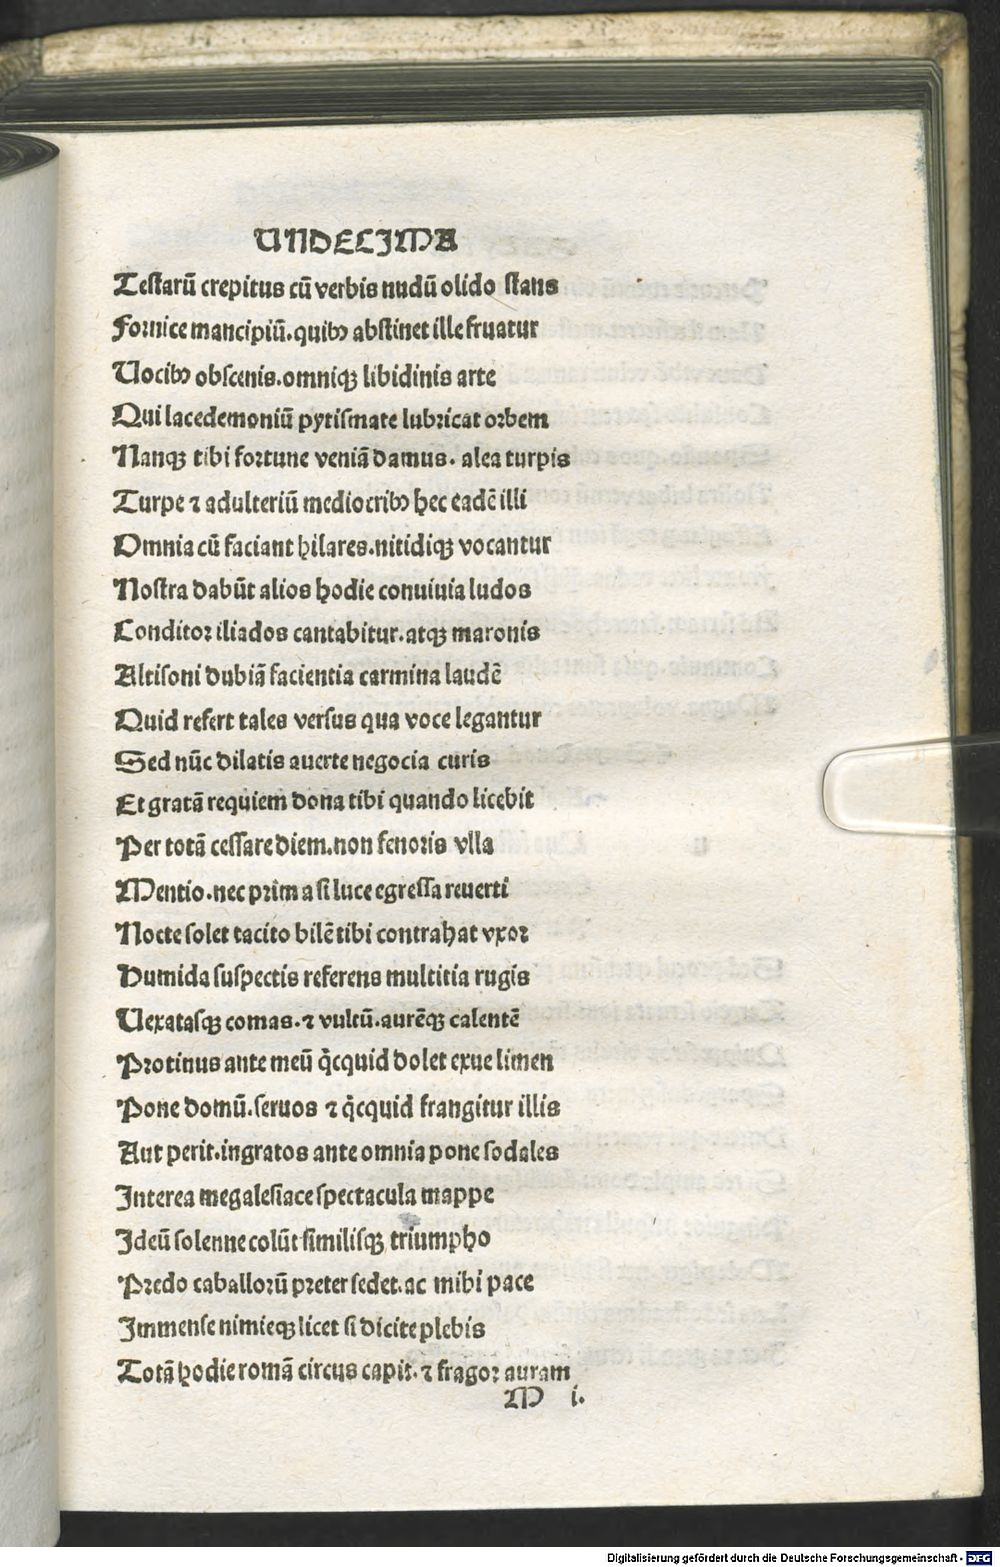 UNDECIMA
Testarū crepitus cū verbis nudū olido stans
Fornice mancipiū.quibꝫ abstinet ille fruatur
Uocibꝫ obscenis.omniqꝫ libidinis arte
Qui lacedemoniū pytismate lubricat orbem
Nanqꝫ tibi fortune veniā damus. alea turpis
Turpe ⁊ adulteriū mediocribꝫ hec eadē illi
Omnia cū faciant hilares.nitidiqꝫ vocantur
Nostra dabūt alios hodie conuiuia ludos
Conditor iliados cantabitur.atqꝫ maronis
Altisoni dubiā facientia carmina laudē
Quid refert tales versus qua voce legantur
Sed nūc dilatis auerte negocia curis
Et gratā requiem dona tibi quando licebit
Per totā cessare diem.non fenoris vlla
Mentio.nec prima si luce egressa reuerti
Nocte solet tacito bilē tibi contrahat vxor
Humida suspectis referens multitia rugis
Uexatasqꝫ comas.⁊ vultū.aurēqꝫ calentē
Protinus ante meū q̇cquid dolet exue limen
Pone domū.seruos ⁊ q̇cquid frangitur illis
Aut perit.ingratos ante omnia pone sodales
Interea megalesiace spectacula mappe
Ideū solenne colūt similisqꝫ triumpho
Predo caballorū preter sedet.ac mihi pace
Immense nimieqꝫ licet si dicite plebis
Totā hodie romā circus capit.⁊ fragor auram
M i.
Digitalisierung gefördert durch die Deutsche Forschungsgemeinschaft - DFG